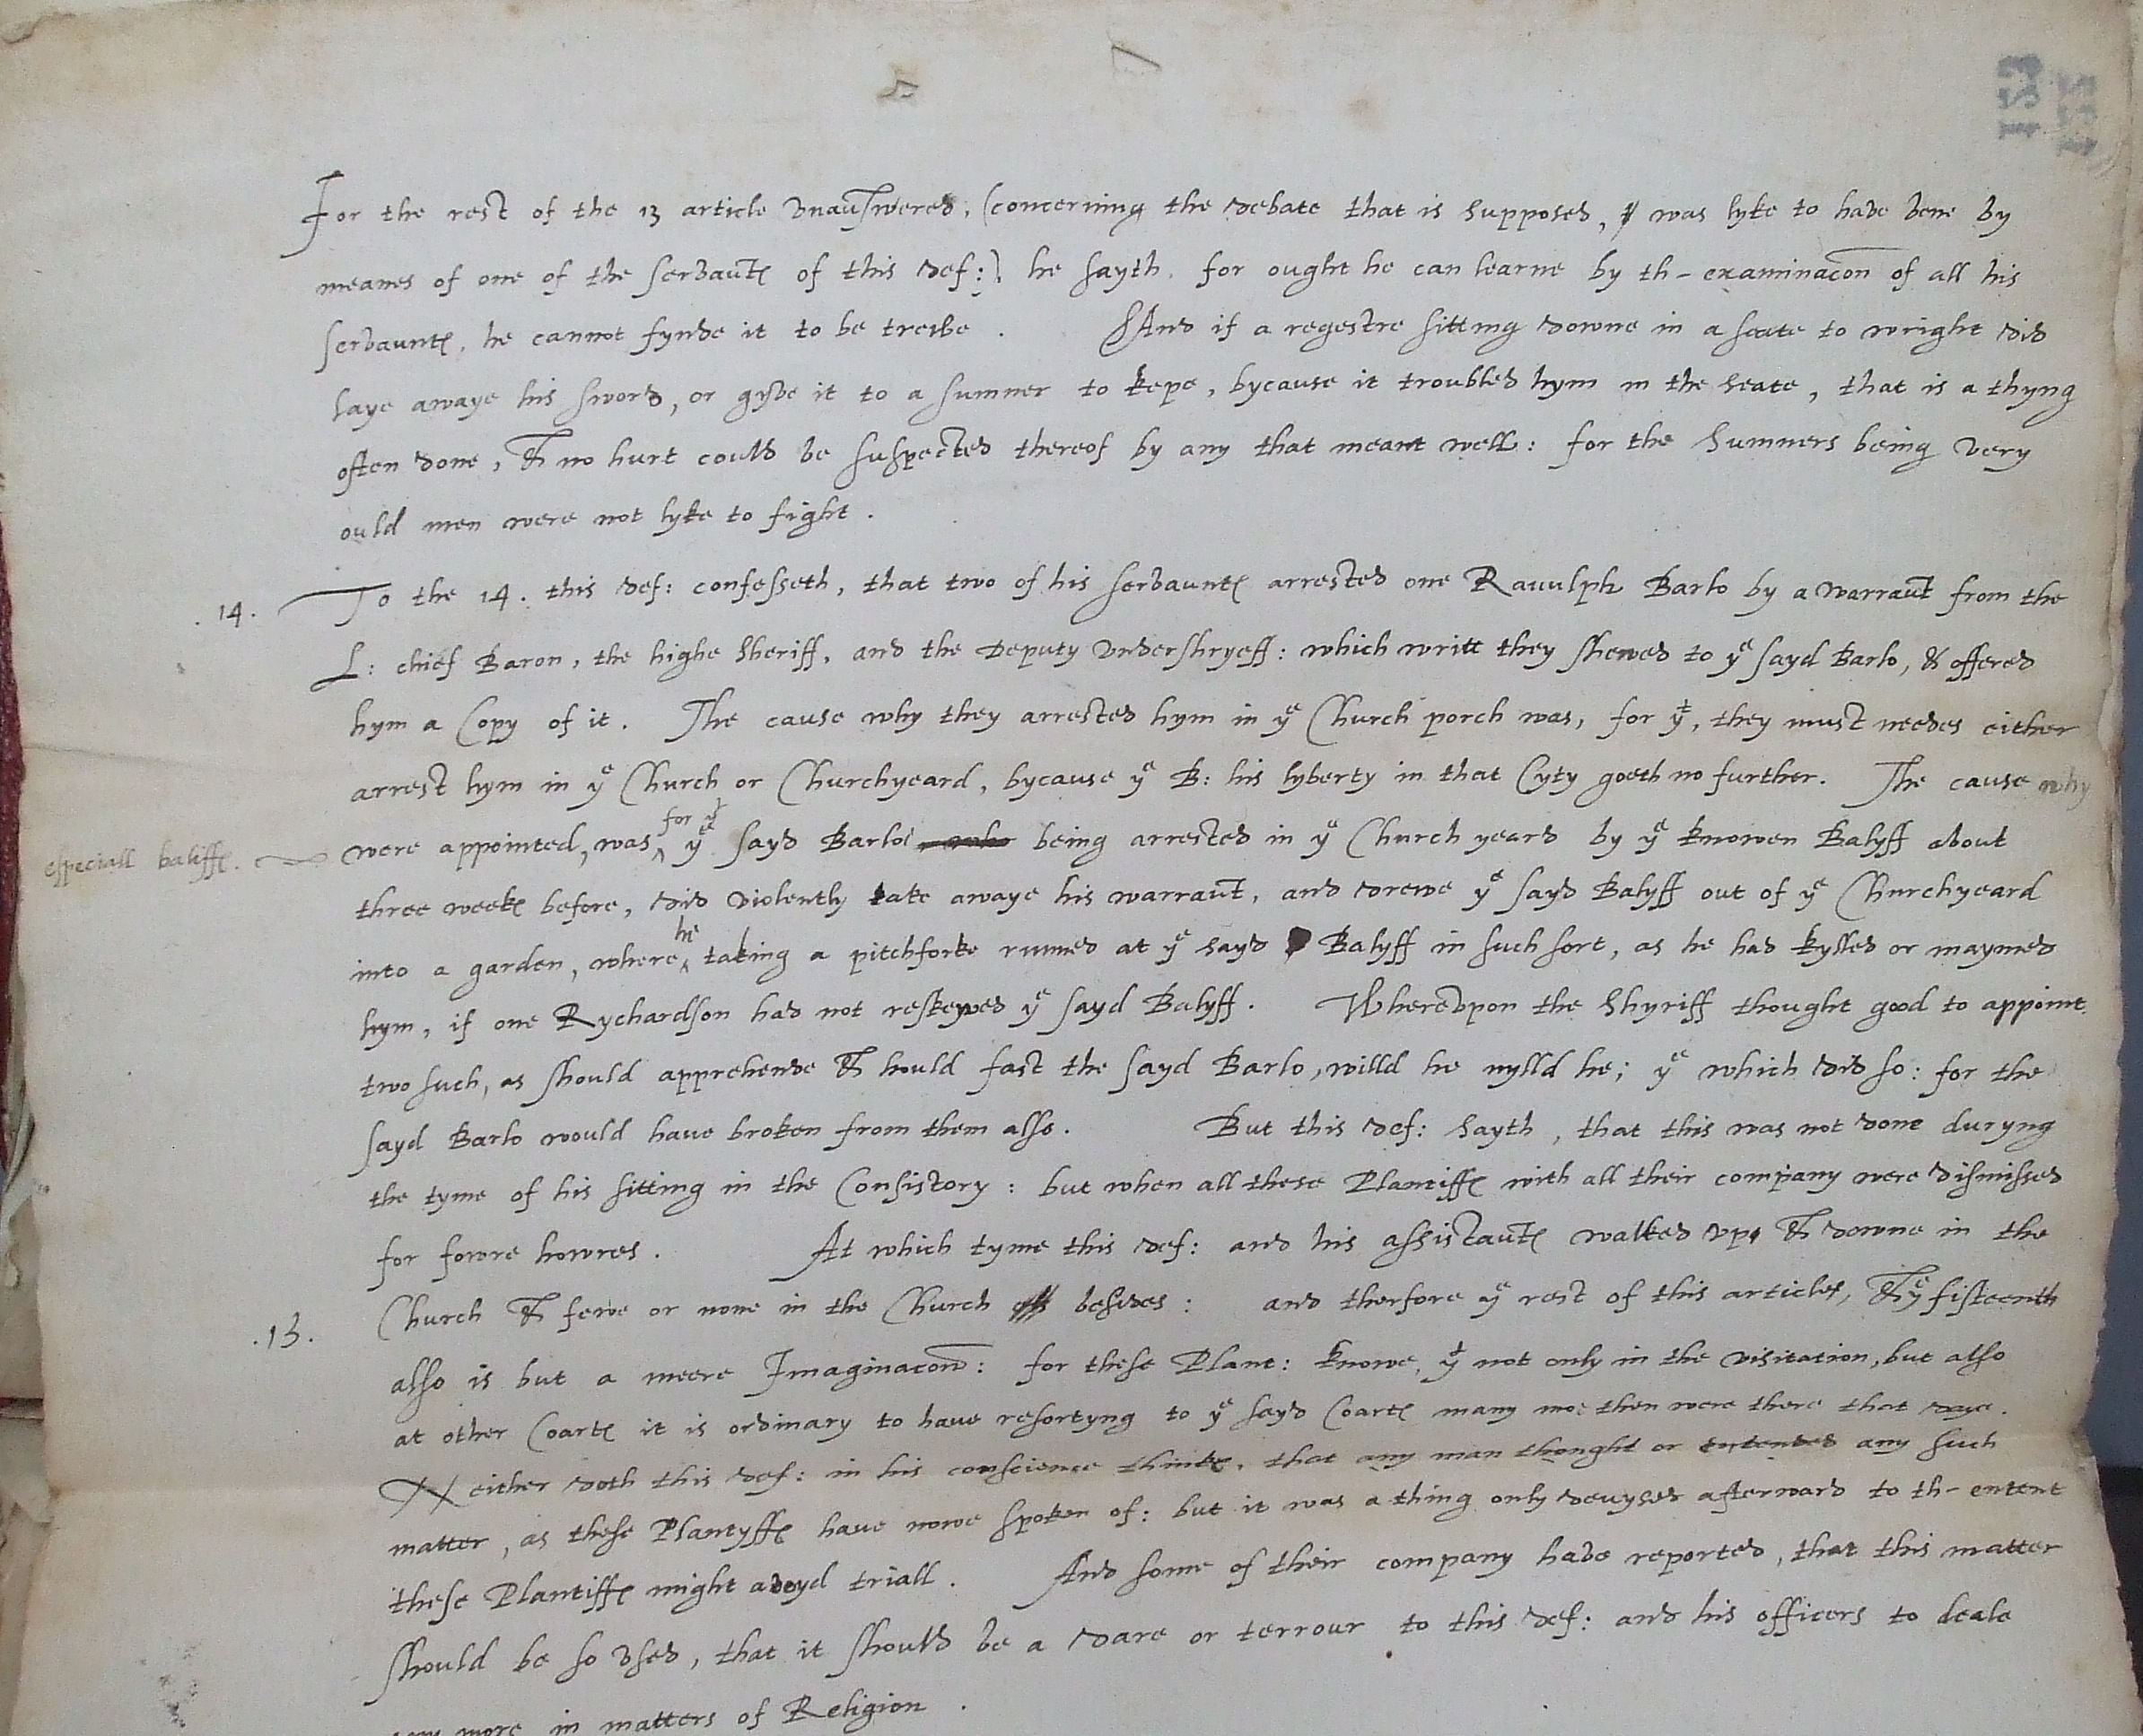 For the rest of the 13 article vnaūswered, (concerning the debate that is supposed, yt was lyke to have bene by
meanes of one of the servaūtes of this def:) he sayth, for ought he can learne by th-examinacōn of all his
servauntes, he cannot fynde it to be trewe. And if a regestre sitting downe in a seate to wright did
laye awaye his sword, or gyve it to a sumner to kepe, bycause it troubled hym in the seate, that is a thyng
often done, & no hurt could be suspected thereof by any that meant well: for the sumners being very
ould men were not lyke to fight.
.14. To the 14. this def: confesseth, that two of his servauntes arrested one Rauulph Barlo by a warraūt from the
L: chief Baron, the highe sheriff, and the Deputy vndershryeff: which writt they shewed to ye sayd Barlo, & offered
hym a Copy of it. The cause why they arrested hym in ye Church porch was, for yt, they must needes either
arrest hym in ye Church or Churchyeard, bycause ye B: his lyberty in that Cyty goeth no further. The cause why
especiall baliffes. were appointed, was for yt ye sayd Barlo being arrested in ye Church yeard by ye knowen Balyff about
three weekes before, did violently take awaye his warraūt, and drewe ye sayd Balyff out of ye Churchyeard
into a garden, where he taking a pitchforke runned at ye sayd Balyff in such sort, as he had kylled or maymed
hym, if one Rychardson had not reskewed ye sayd Balyff. Wherevpon the Shyriff thought good to appoint
two such, as should apprehende & hould fast the sayd Barlo, willd he nylld he; ye which did so: for the
sayd Barlo would have broken from them also. But this def: sayth, that this was not done duryng
the tyme of his sitting in the Consistory: but when all these Plantiffes with all their company were dismissed
for fowre howres. At which tyme this def: and his assistaūtes walked vp & downe in the
.15. Church & fewe or none in the Church besides: and therfore ye rest of this article, & ye fifteenth
also is but a meere Imaginacōn: for these Plant: knowe, yt not only in the visitation, but also
at other Coartes it is ordinary to have resortyng to ye sayd Coartes many moe then were there that daye.
Neither doth this def: in his conscience thinke, that any man thought or entended any such
matter, as these Plantyffes have nowe spoken of: but it was a thing only devysed afterward to th-entent
these Plantiffes might avoyd triall. And some of their company have reported, that this matter
should be so vsed, that it should be a dare or terrour to this def: and his officers to deale
any more in matters of Religion.